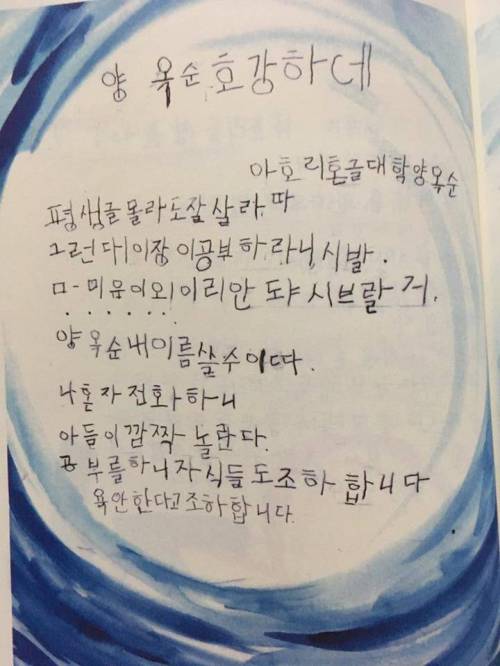 양 옥순 호강하네
아호리한글대학양옥순
평생글몰라도잘살라따
그런대이장이공부하라니시발.
ㅁ-미음이외이리안 도냐 시브랄 거.
양옥순내이름쓸수이따.
나혼자전화하니
아들이깜짝놀란다.
공부를하니자식들도조하합니다
욕안한다고조하합니다.